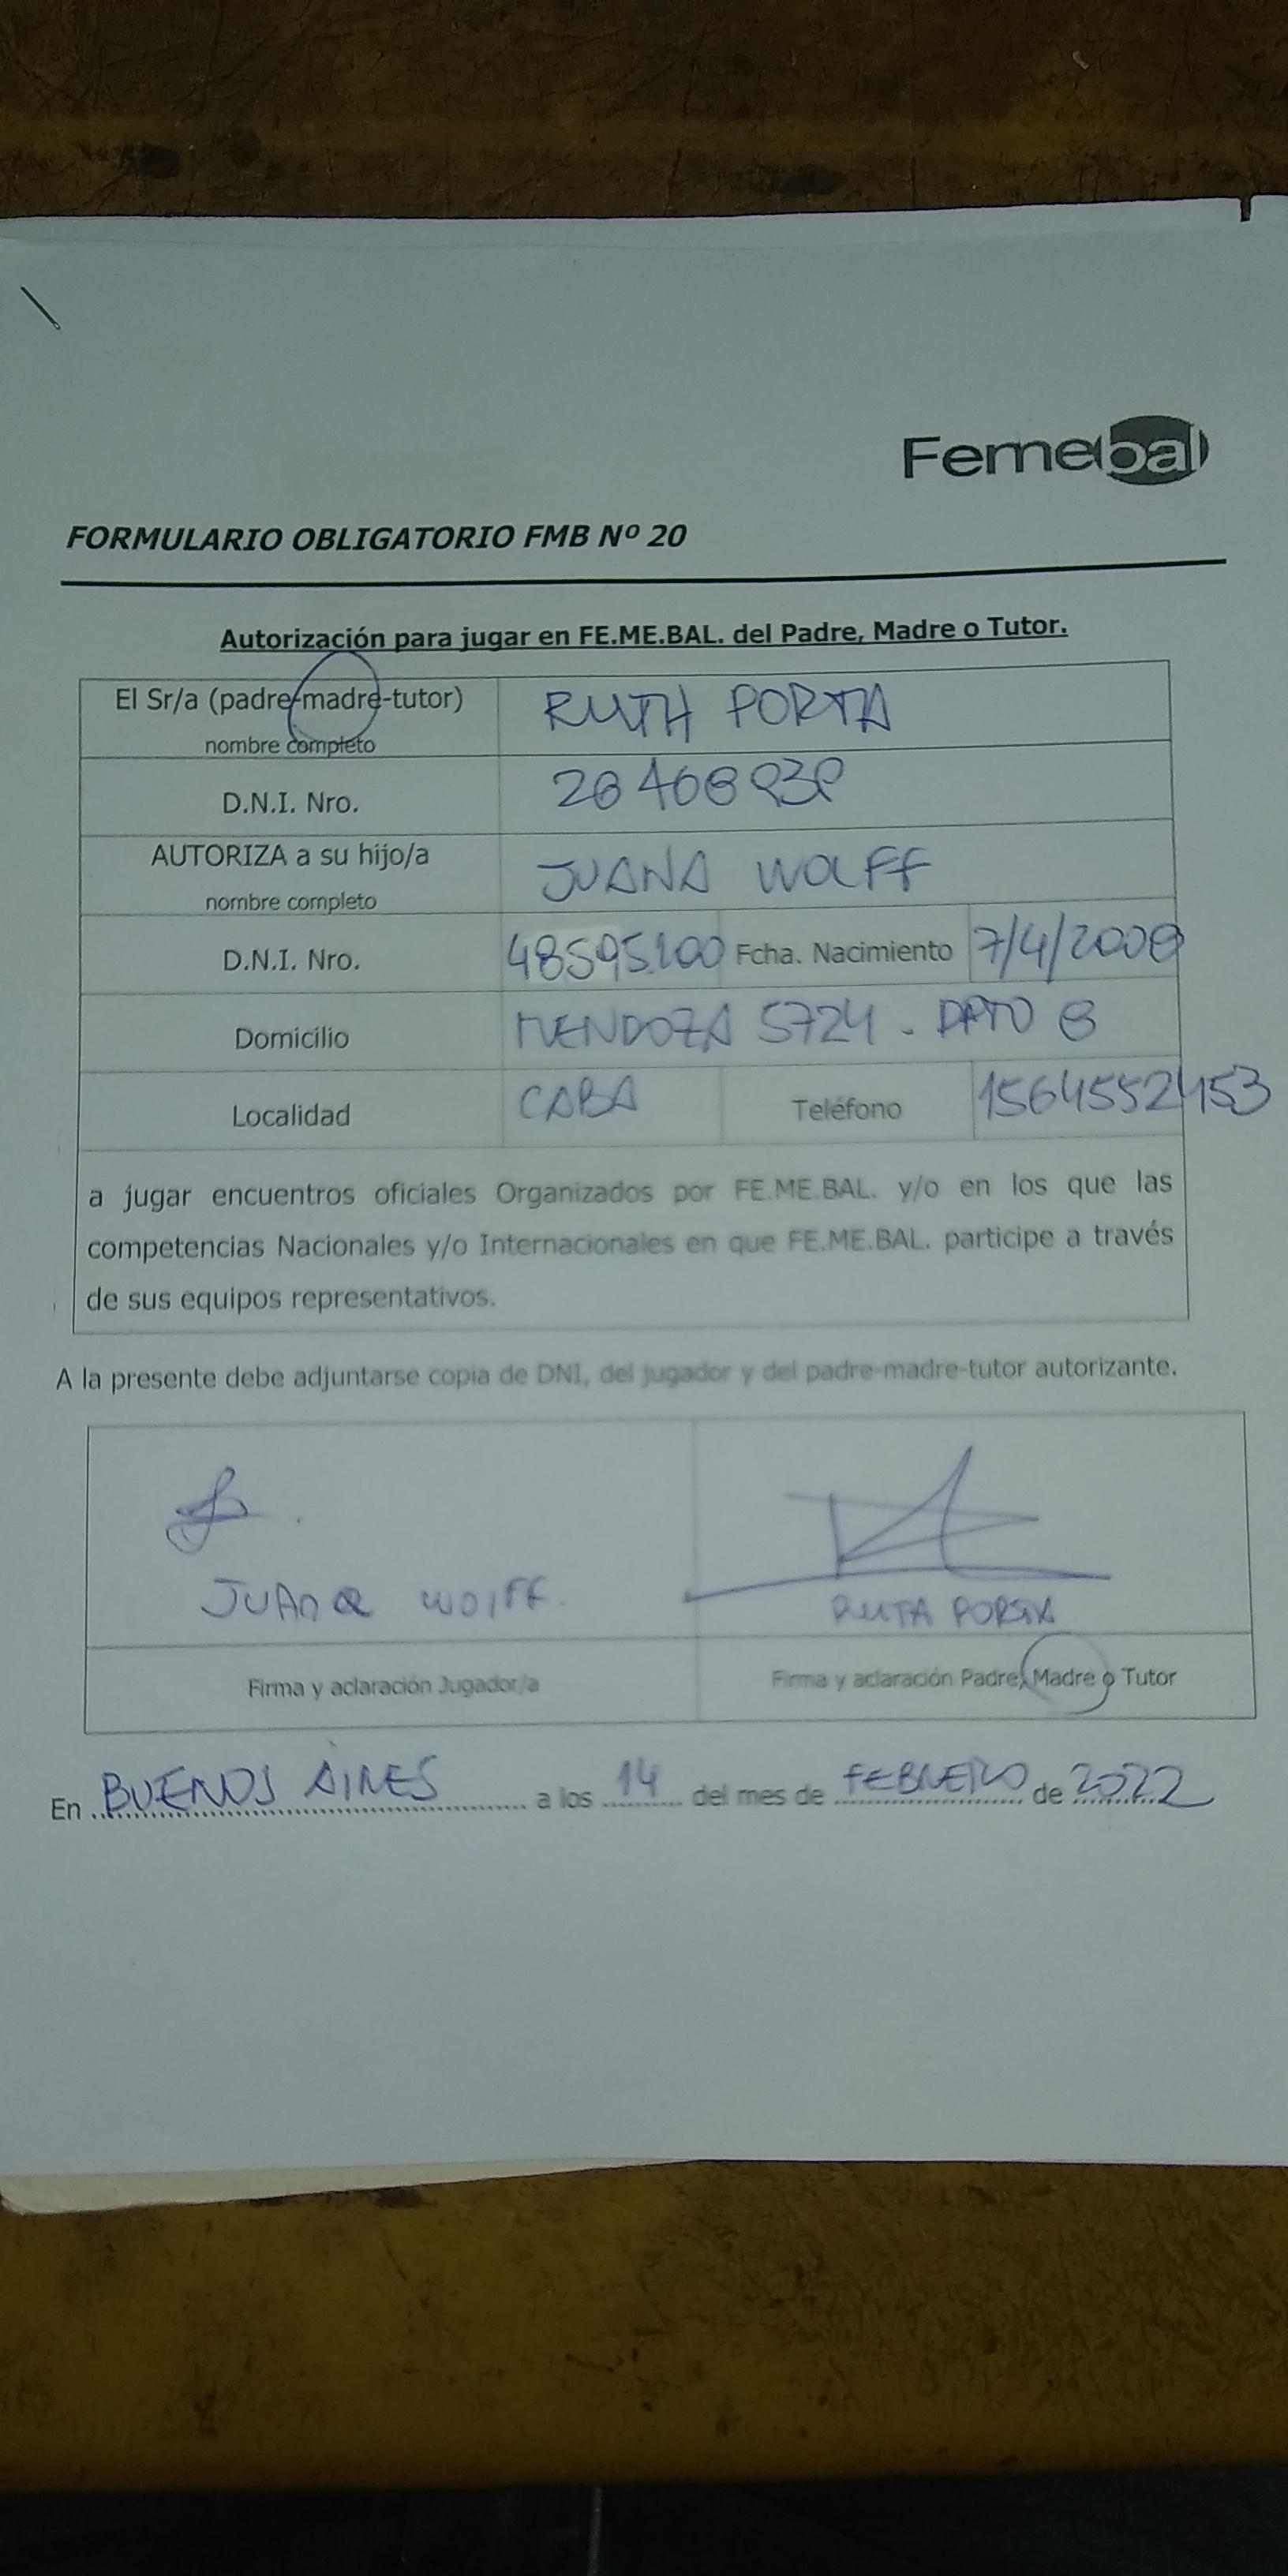 Femebal
FORMULARIO OBLIGATORIO FMB Nº 20
Autorización para jugar en FE.ME.BAL. del Padre, Madre o Tutor.
El Sr/a (padre-madre-tutor) RUTH PORTA
nombre completo
D.N.I. Nro.
AUTORIZA a su hijo/a JUANA WOLFF
nombre completo
D.N.I. Nro. 48595.100 Fcha. Nacimiento 7/4/2008
Domicilio MENDOZA 5724 - DPTO 8
Localidad CABA Teléfono 1564552453
a jugar encuentros oficiales Organizados por FE.ME.BAL. y/o en los que las
competencias Nacionales y/o Internacionales en que FE.ME.BAL. participe a través
de sus equipos representativos.
A la presente debe adjuntarse copia de DNI, del jugador y del padre-madre-tutor autorizante.
JUANA WOLFF. RUTH PORTA
Firma y aclaración Jugador/a Firma y aclaración Padre, Madre o Tutor
En BUENOS AIRES a los 14 del mes de FEBRERO de 2022